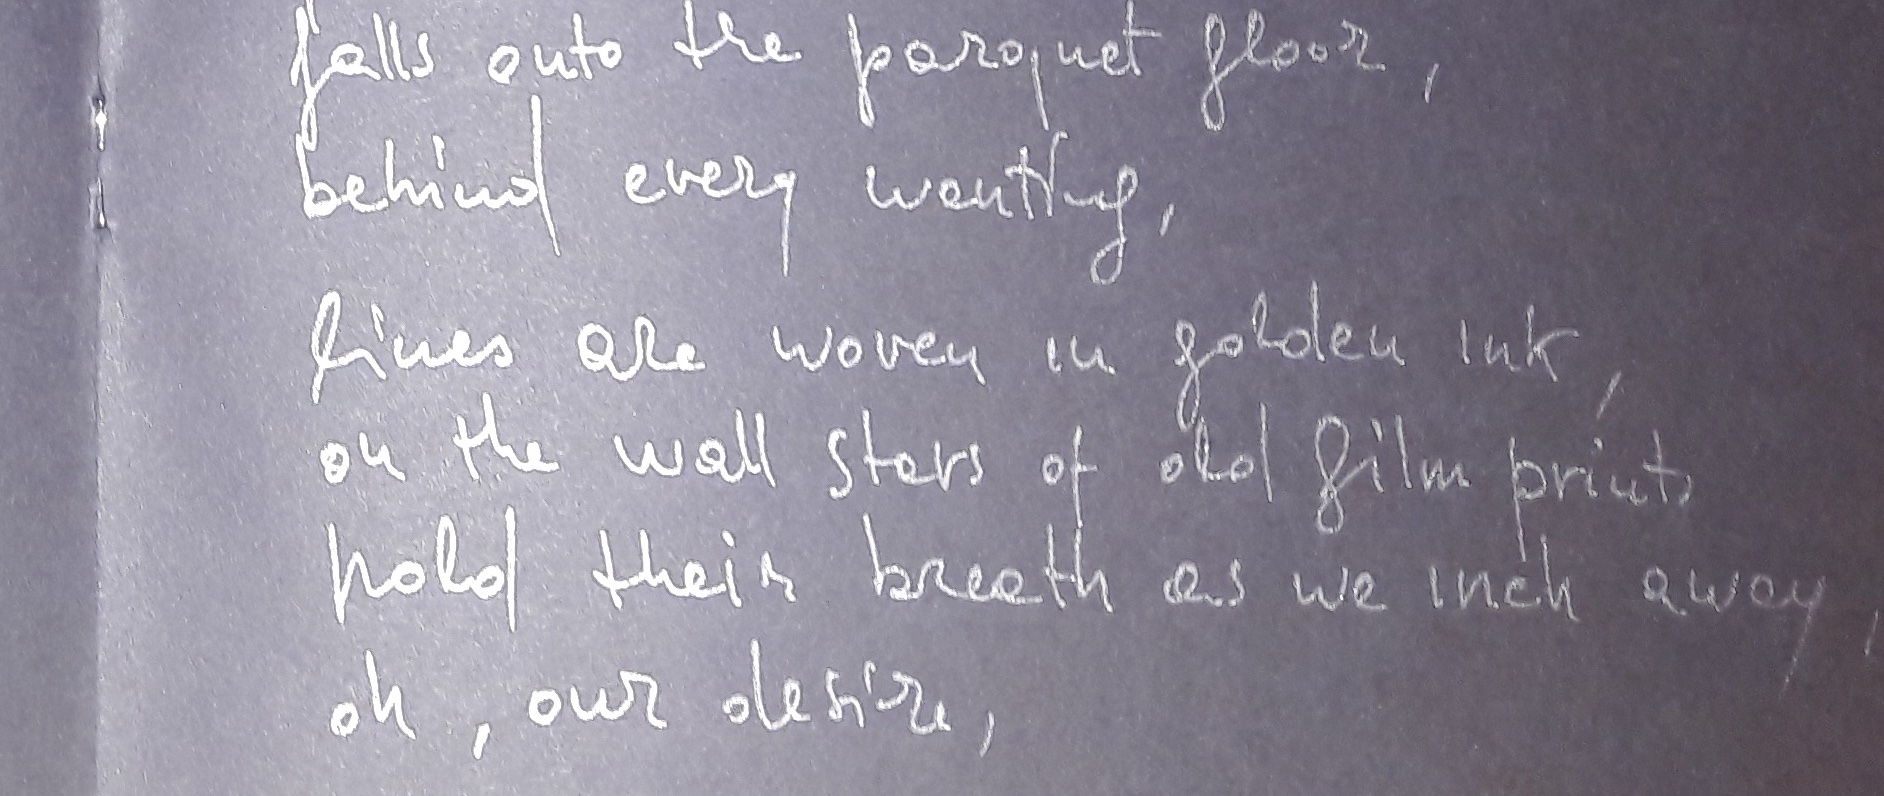 falls onto the parquet floor,
behind every wanting,
lines are woven in golden ink,
on the wall stars of old film prints
hold their breath as we inch away,
oh, our desire,